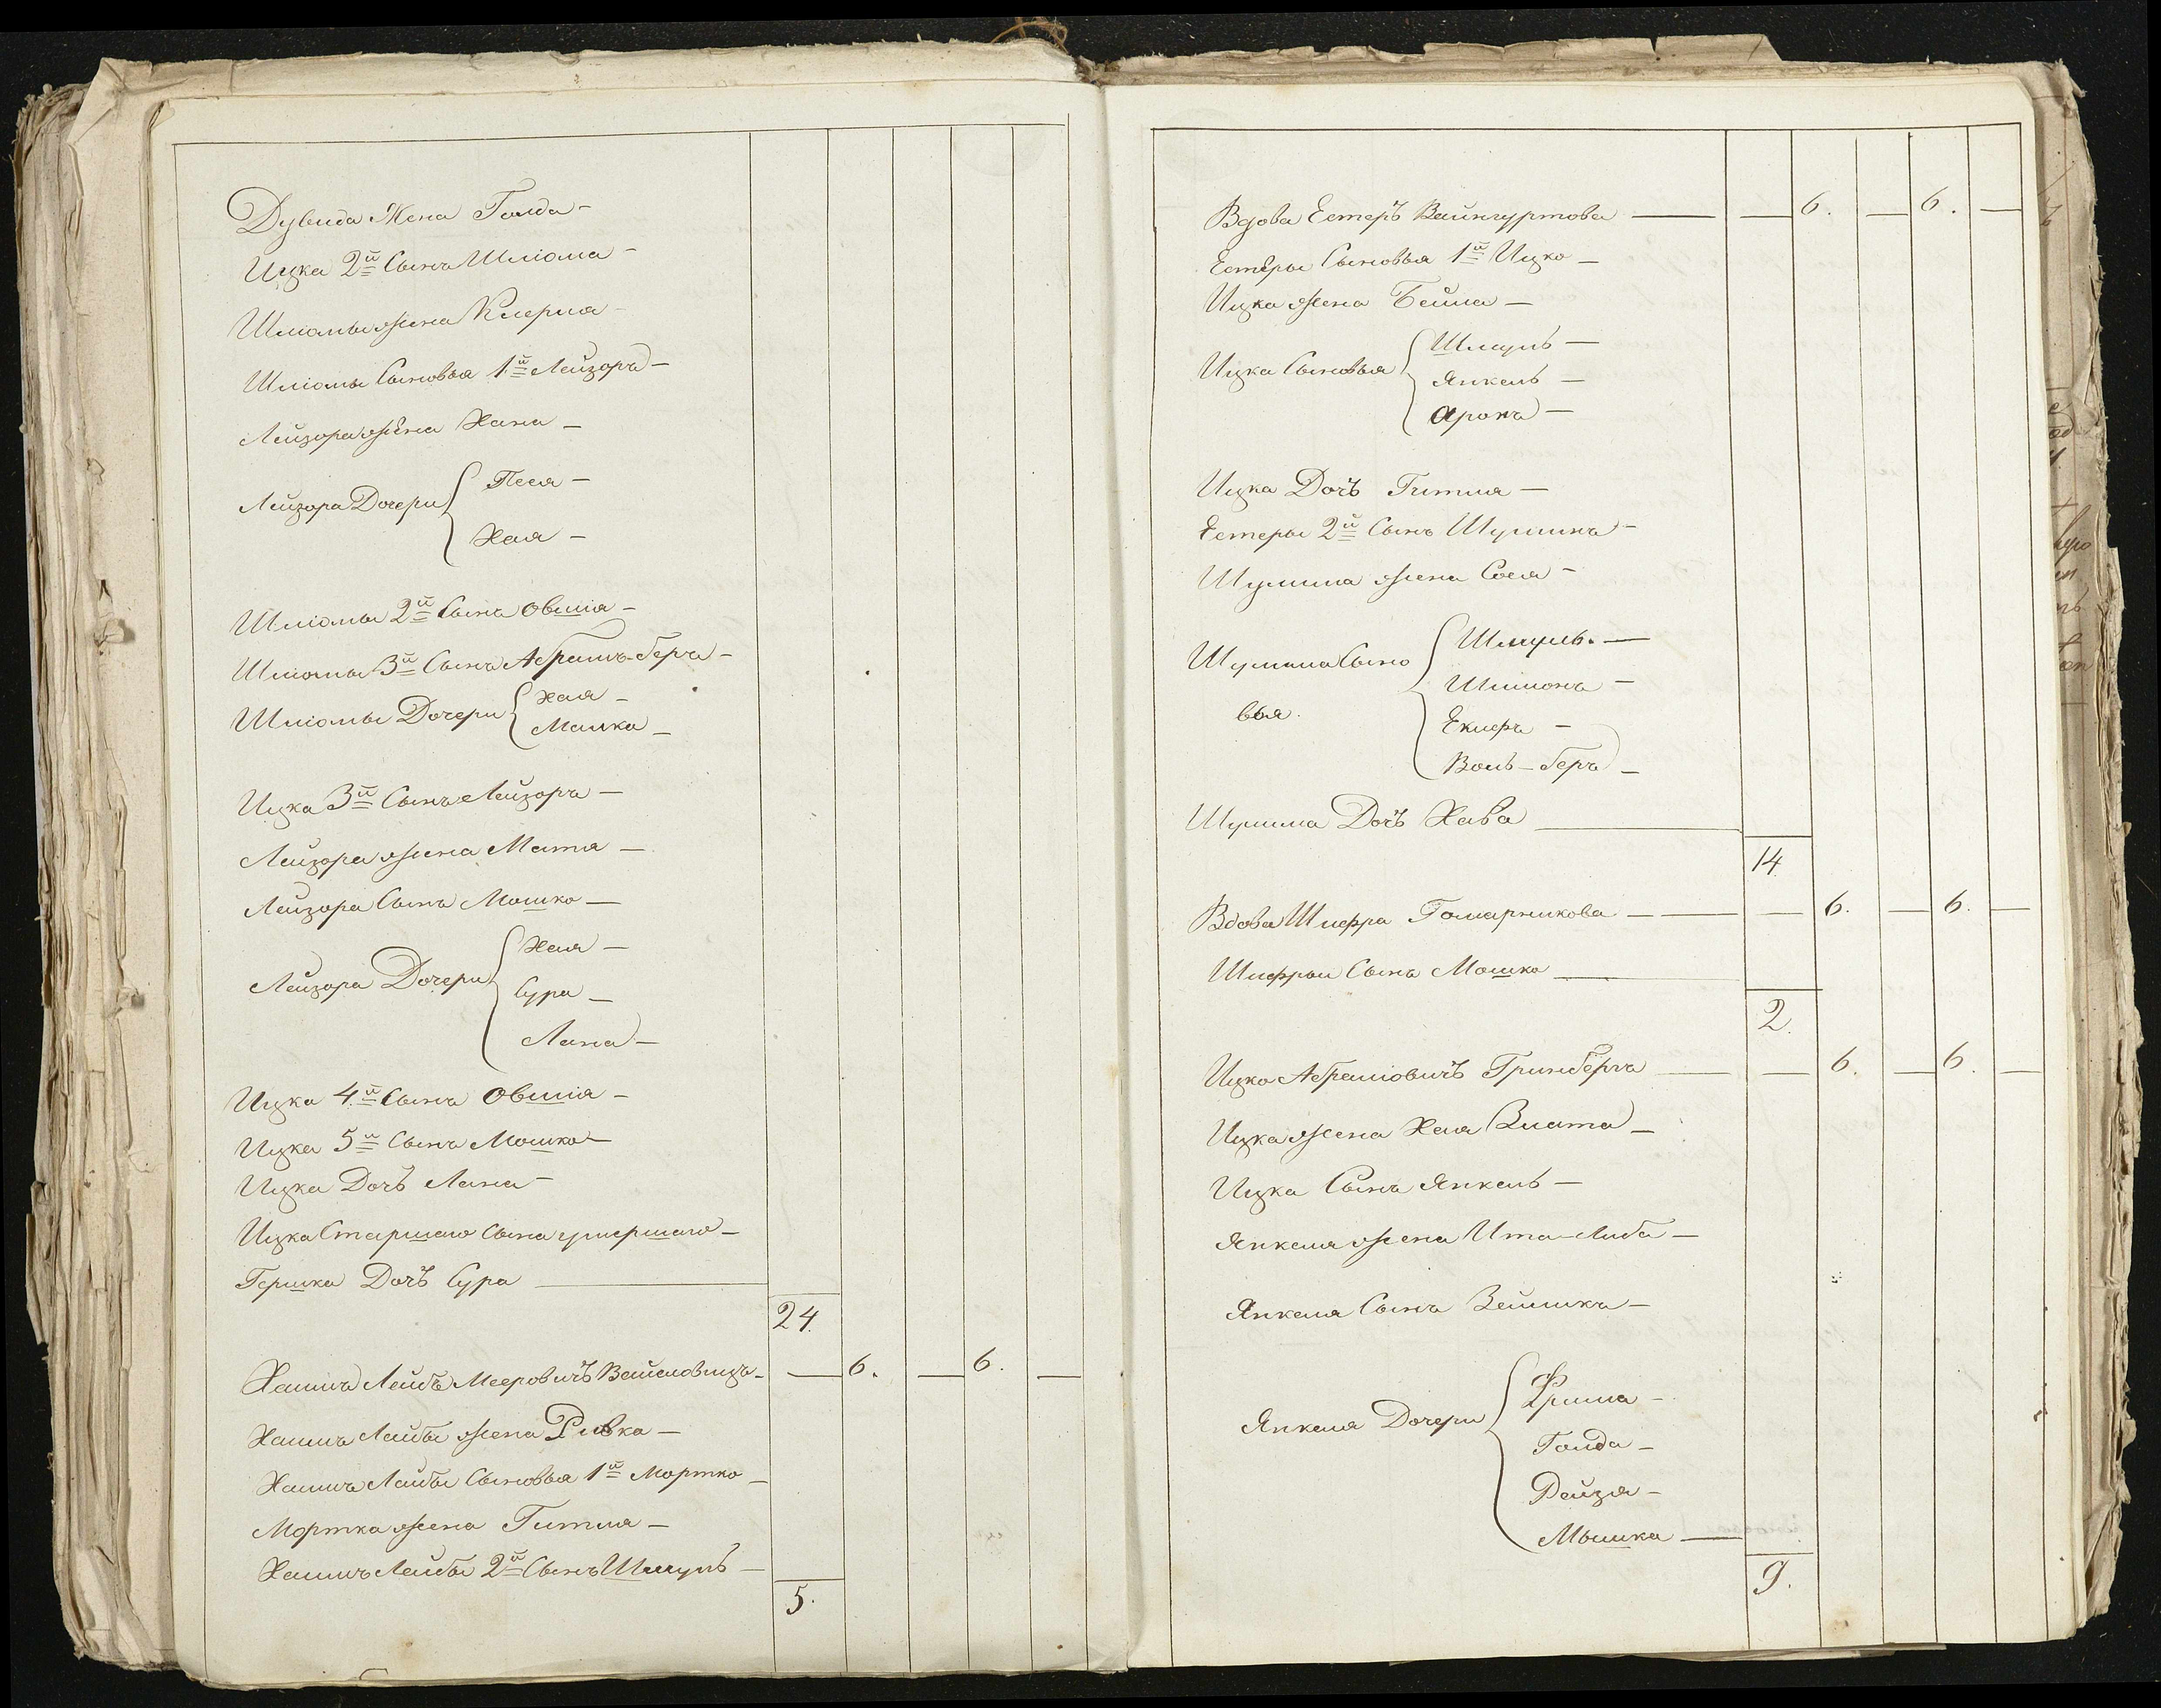 Дувида Жена Голда –
Ицка 2й Сынъ Шліома –
Шліомы жена Клерна –
Шліомы Сыновья 1й Лейзоръ –
Лейзора жена Хана –
Лейзора Дочери Песя –
Хая –
Шліомы 2й Сынъ Овшія –
Шліомы 3й Сынъ Абрамъ-Беръ –
Шліомы Дочери Хая –
Малка –
Ицка 3й Сынъ Лейзоръ –
Лейзора жена Матя –
Лейзора Сынъ Мошко –
Лейзора Дочери Хая –
Сура –
Лана –
Ицка 4й Сынъ Овшія –
Ицка 5й Сынъ Мошко –
Ицка Дочь Лана –
Ицка Старшаго сына умершаго –
Гершка Дочь Сура
24.
Хаимъ Лейбъ Мееровичъ – 6. – 6. –
Хаимъ Лейбы жена Ривка –
Хаимъ Лейбы Сыновья 1й Мортко –
Мортка жена Гитля –
Хаимъ Лейбы 2й Сынъ Шмуль –
5.
Вдова Естеръ Вайнгуртова – 6. – 6. –
Естеры Сыновья 1й Ицко –
Ицка жена Бейла –
Ицка Сыновья Шмуль –
Янкель –
Аронъ –
Ицка Дочь Гитля –
Естеры 2й Сынъ Шулимъ –
Шулима жена Сося –
Шулима Сыно Шмуль. –
вья. Шимонъ –
Екифъ –
Воль-Беръ –
Шулима Дочь Хава
14
Вдова Шифра Гомарникова – 6. – 6. –
Шифры Сынъ Мошко
2.
Ицко Абрамовичъ Гринбергъ – 6. – 6. –
Ицка жена Хая Злата –
Ицка Сынъ Янкель –
Янкеля жена Ита-Либа –
Янкеля Сынъ Зейликъ –
Янкеля Дочери Фрима –
Голда –
Рейзя –
Мышка –
9.